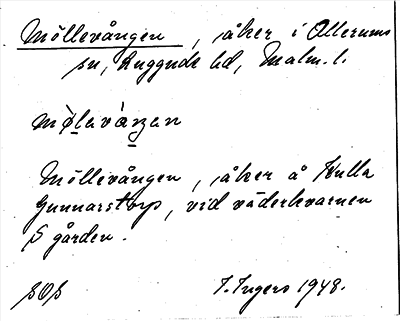 Möllevången, åker i Allerums
sn, Luggude hd, Malm. l.
Möllevången, åker å Kulla
Gunnarstorp, vid väderkvarnen
S gården.
SOS I. Ingers 1948.